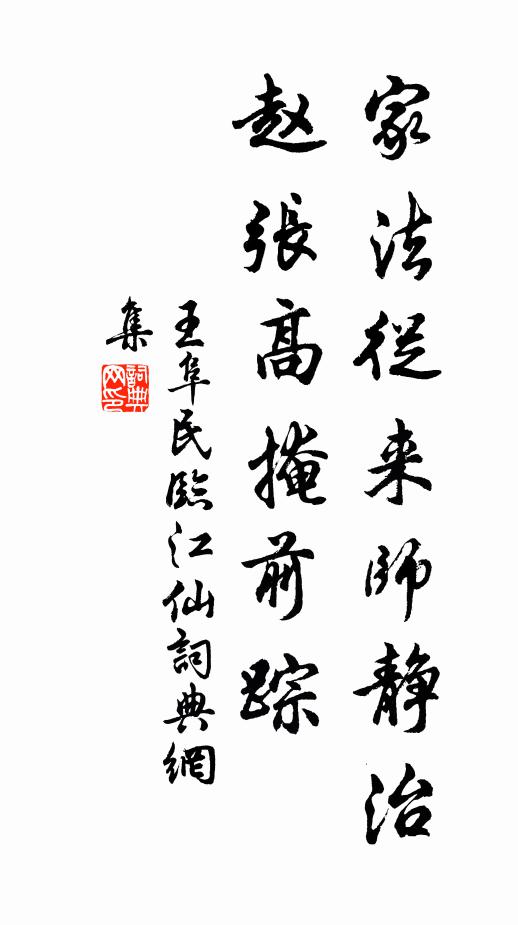 家法從来師静治
赵張高掩前踪
王阜民臨江仙詞典網
集
詞典网印